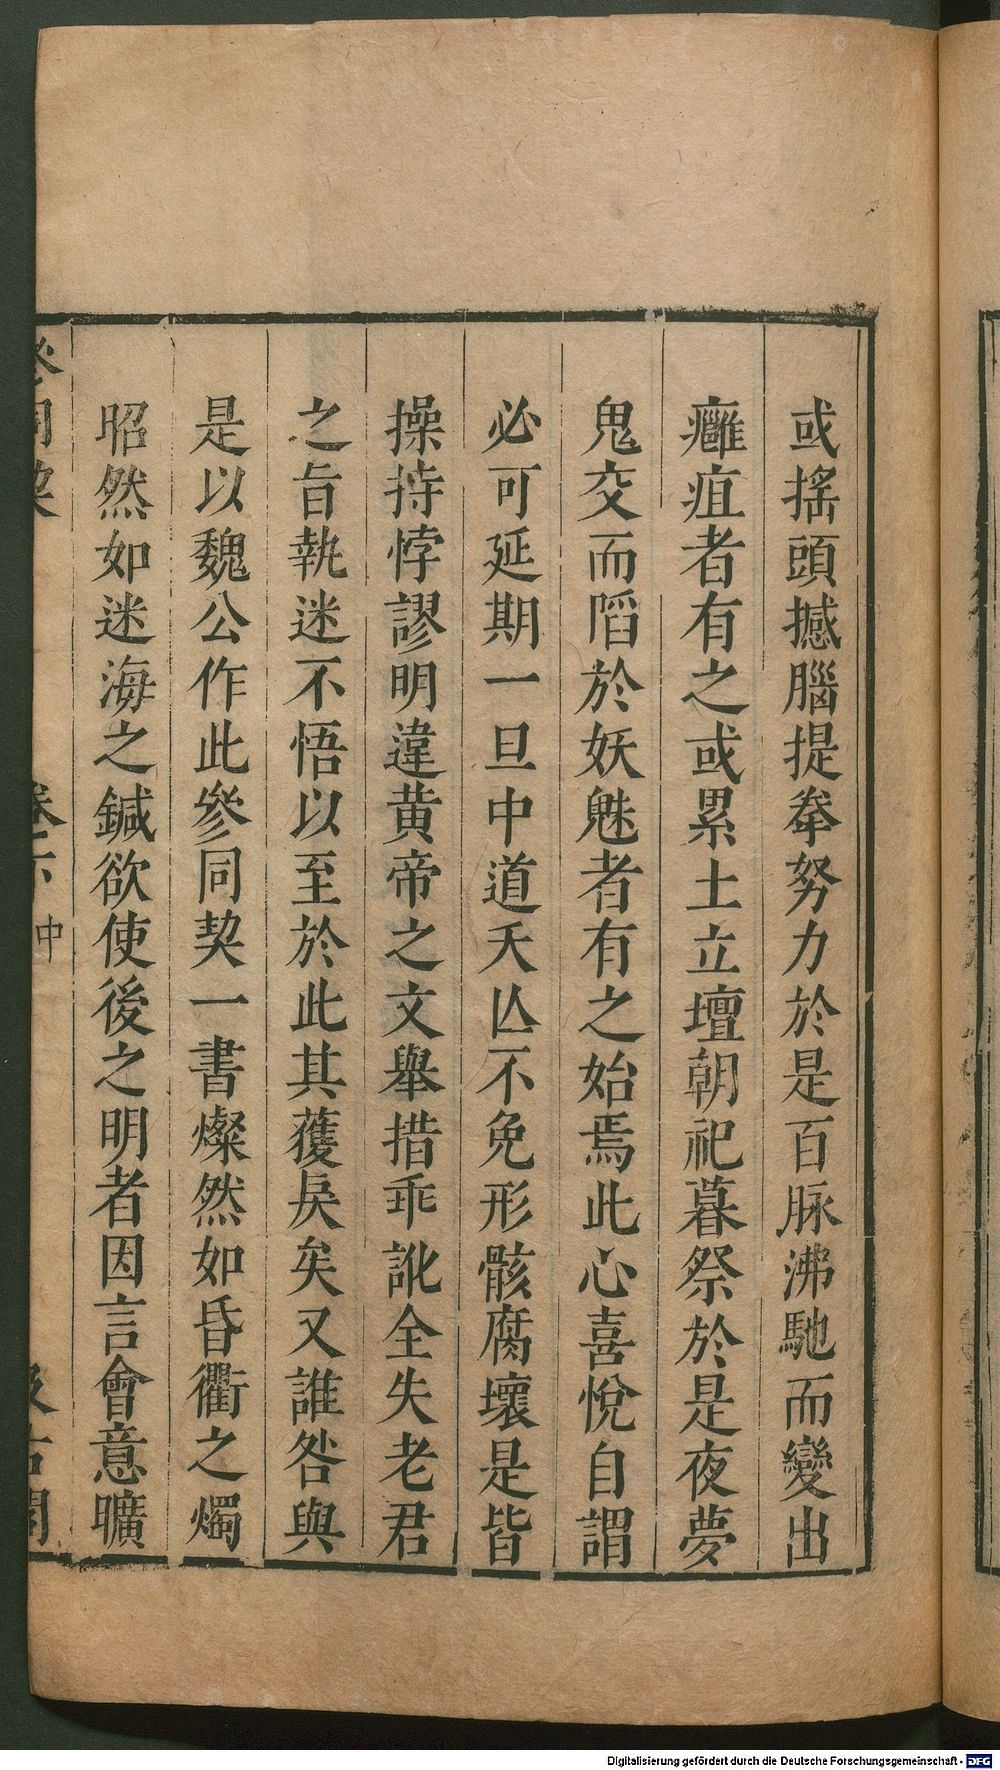 或搖頭撼腦提拳努力於是百脉沸馳而變出
癰疽者有之或累土立壇朝祀暮祭於是夜夢
鬼交而陷於妖魅者有之始焉此心喜悅自謂
必可延期一旦中道夭亾不免形骸腐壞是皆
操持悖謬明違黃帝之文舉措乖訛全失老君
之旨執迷不悟以至於此其獲戾矣又誰咎與
是以魏公作此參同契一書燦然如昏衢之燭
昭然如迷海之鍼欲使後之明者因言會意曠
參同契 卷下 中 汲古閣
Digitalisierung gefördert durch die Deutsche Forschungsgemeinschaft - DFG